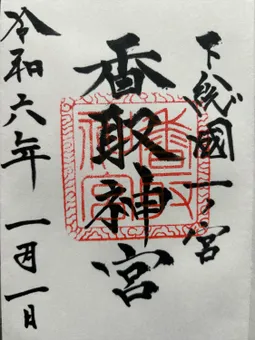 下総國一ノ宮
香取神宮
令和六年 一月一日